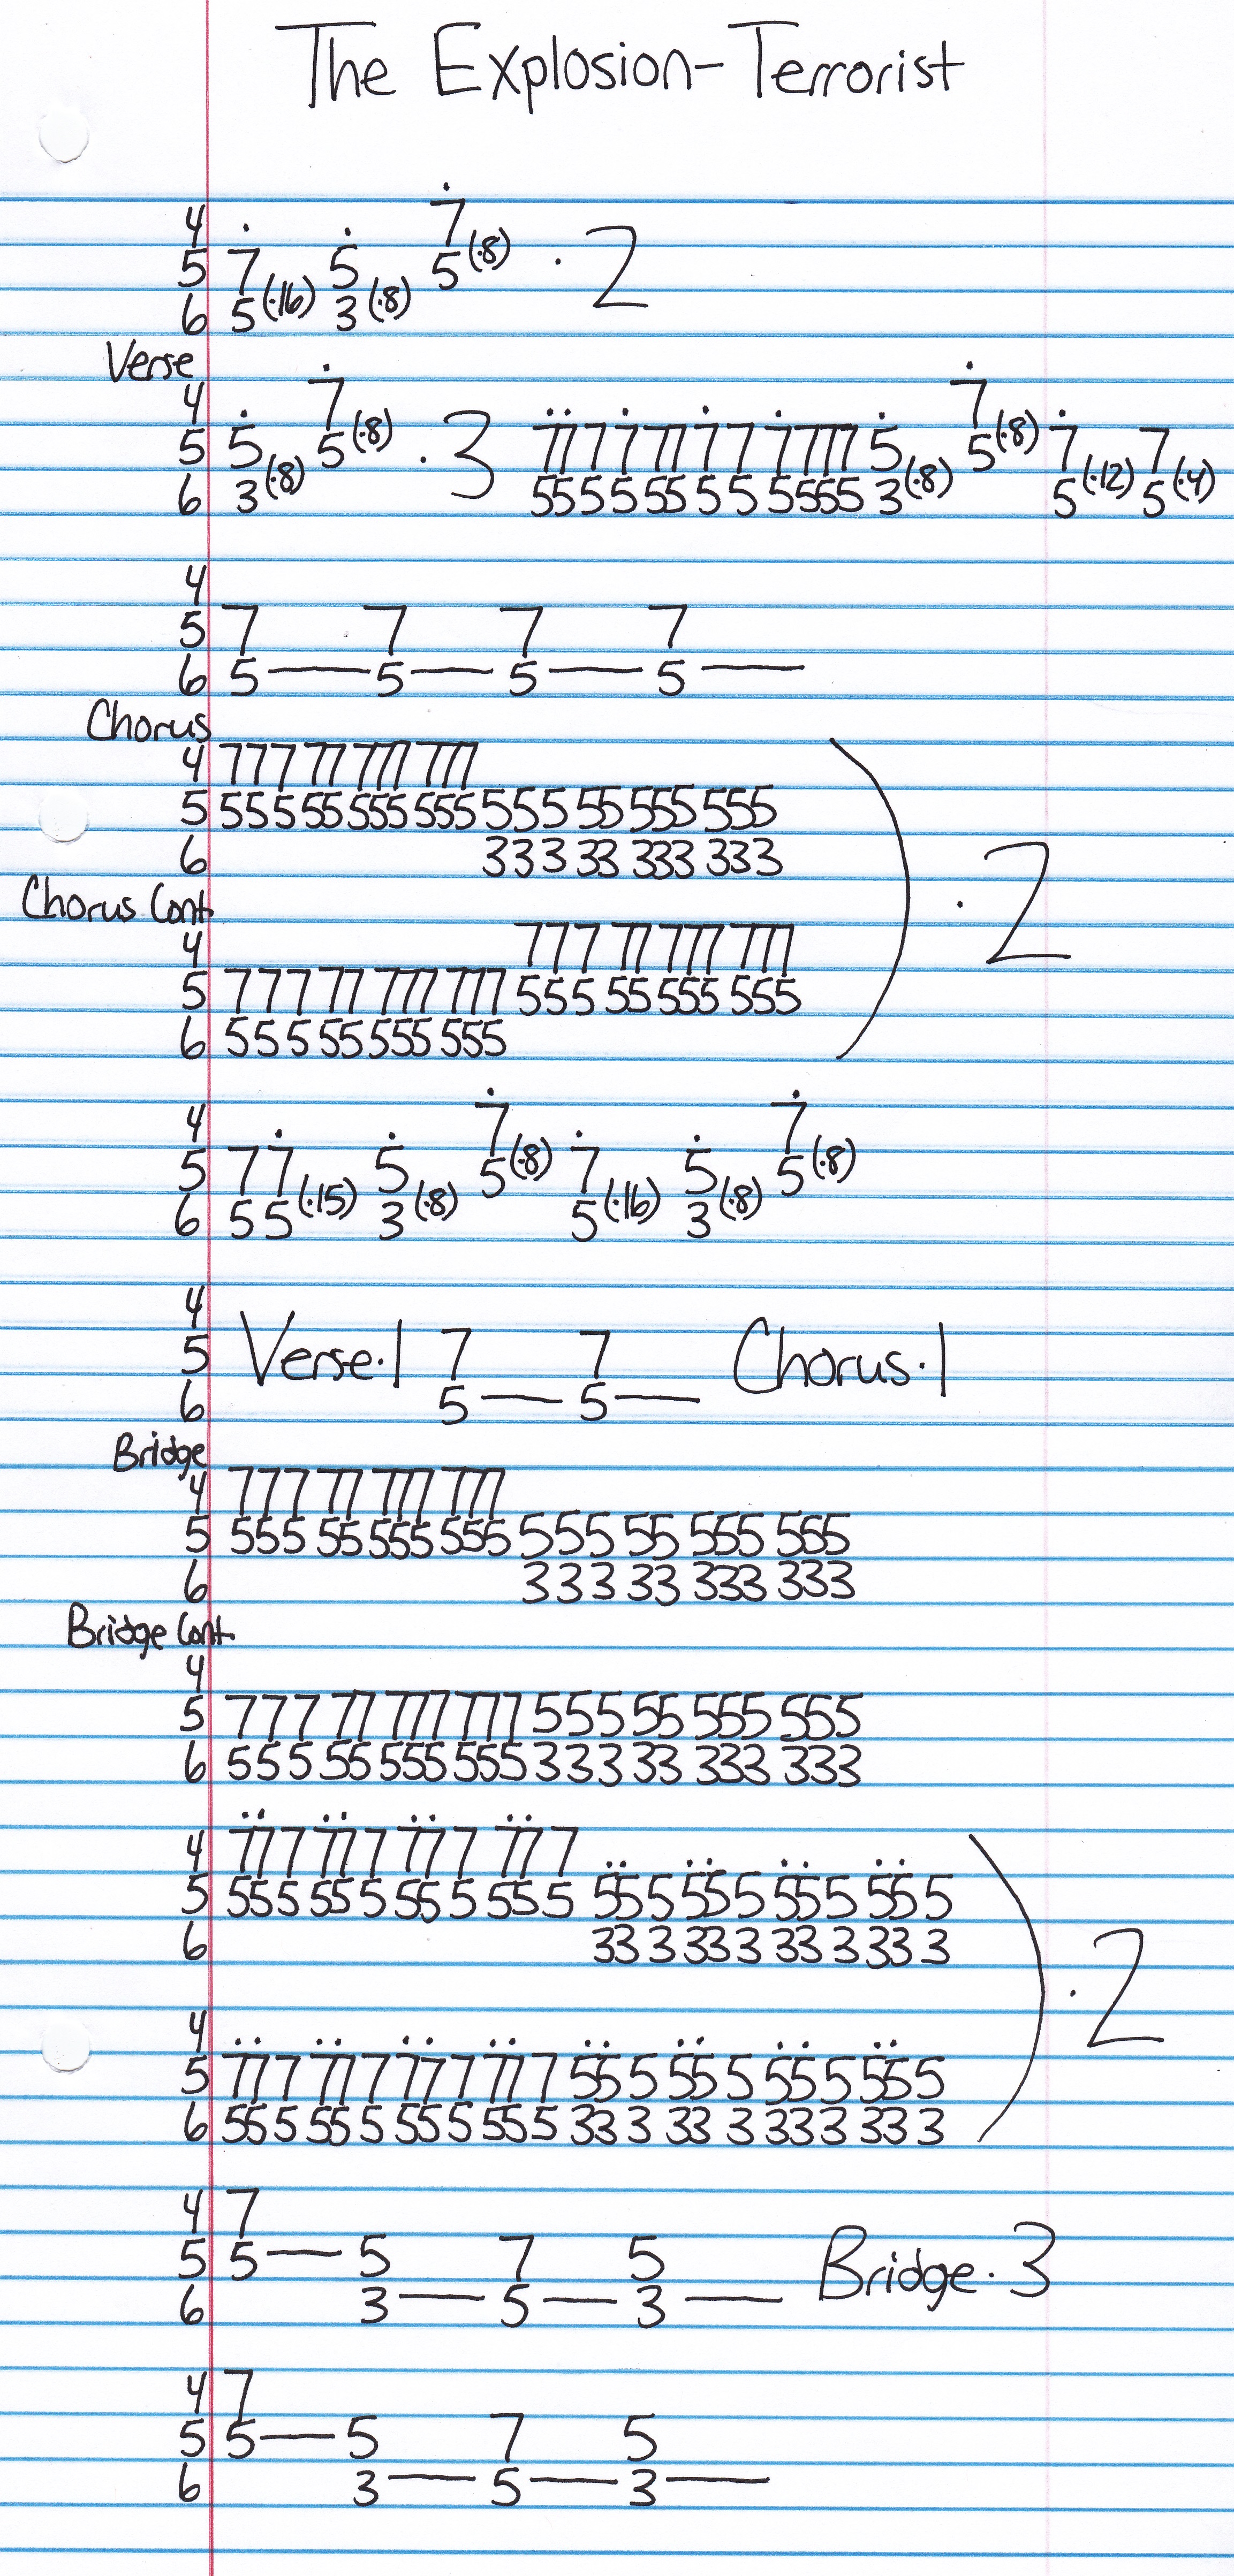 The Explosion-Terrorist
4 7(·8)
5 7 5 5 · 2
6 5(·16) 3(·8)
Verse
4 7
5 5 7 5(·8) · 3 77 7 7 77 7 7 7777 5 5(·8) 7 7
6 3(·8) 55 5 5 55 5 5 5555 3(·8) 5(·12) 5(·4)
4
5 7 7 7 7
6 5 — 5 — 5 — 5 —
Chorus
4 777 77 777 777
5 555 55 555 555 555 55 555 555
6 333 33 333 333
· 2
Chorus Cont
4 777 77 777 777
5 777 77 777 777 555 55 555 555
6 555 55 555 555
4 7 7
5 7 7 5 5(·8) 7 5 5(·8)
6 5 5(·15) 3(·8) 5(·16) 3(·8)
4
5 Verse·1 7 7 Chorus·1
6 5 — 5 —
Bridge
4 777 77 777 777
5 555 55 555 555 555 55 555 555
6 333 33 333 333
Bridge Cont.
4
5 777 77 777 777 555 55 555 555
6 555 55 555 555 333 33 333 333
4 77 7 77 7 77 7 77 7
5 55 5 55 5 55 5 55 5 55 5 55 5 55 5 55 5
6 33 3 33 3 33 3 33 3
· 2
4
5 77 7 77 7 77 7 77 7 55 5 55 5 55 5 55 5
6 55 5 55 5 55 5 55 5 33 3 33 3 33 3 33 3
4 7
5 5 — 5 7 5 Bridge · 3
6 3 — 5 — 3 —
4 7
5 5 — 5 7 5
6 3 — 5 — 3 —